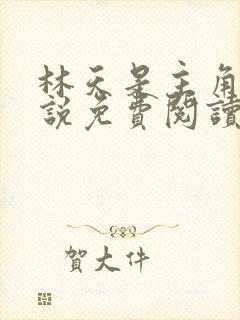 林天是主角
說免費閱讀
賀大件